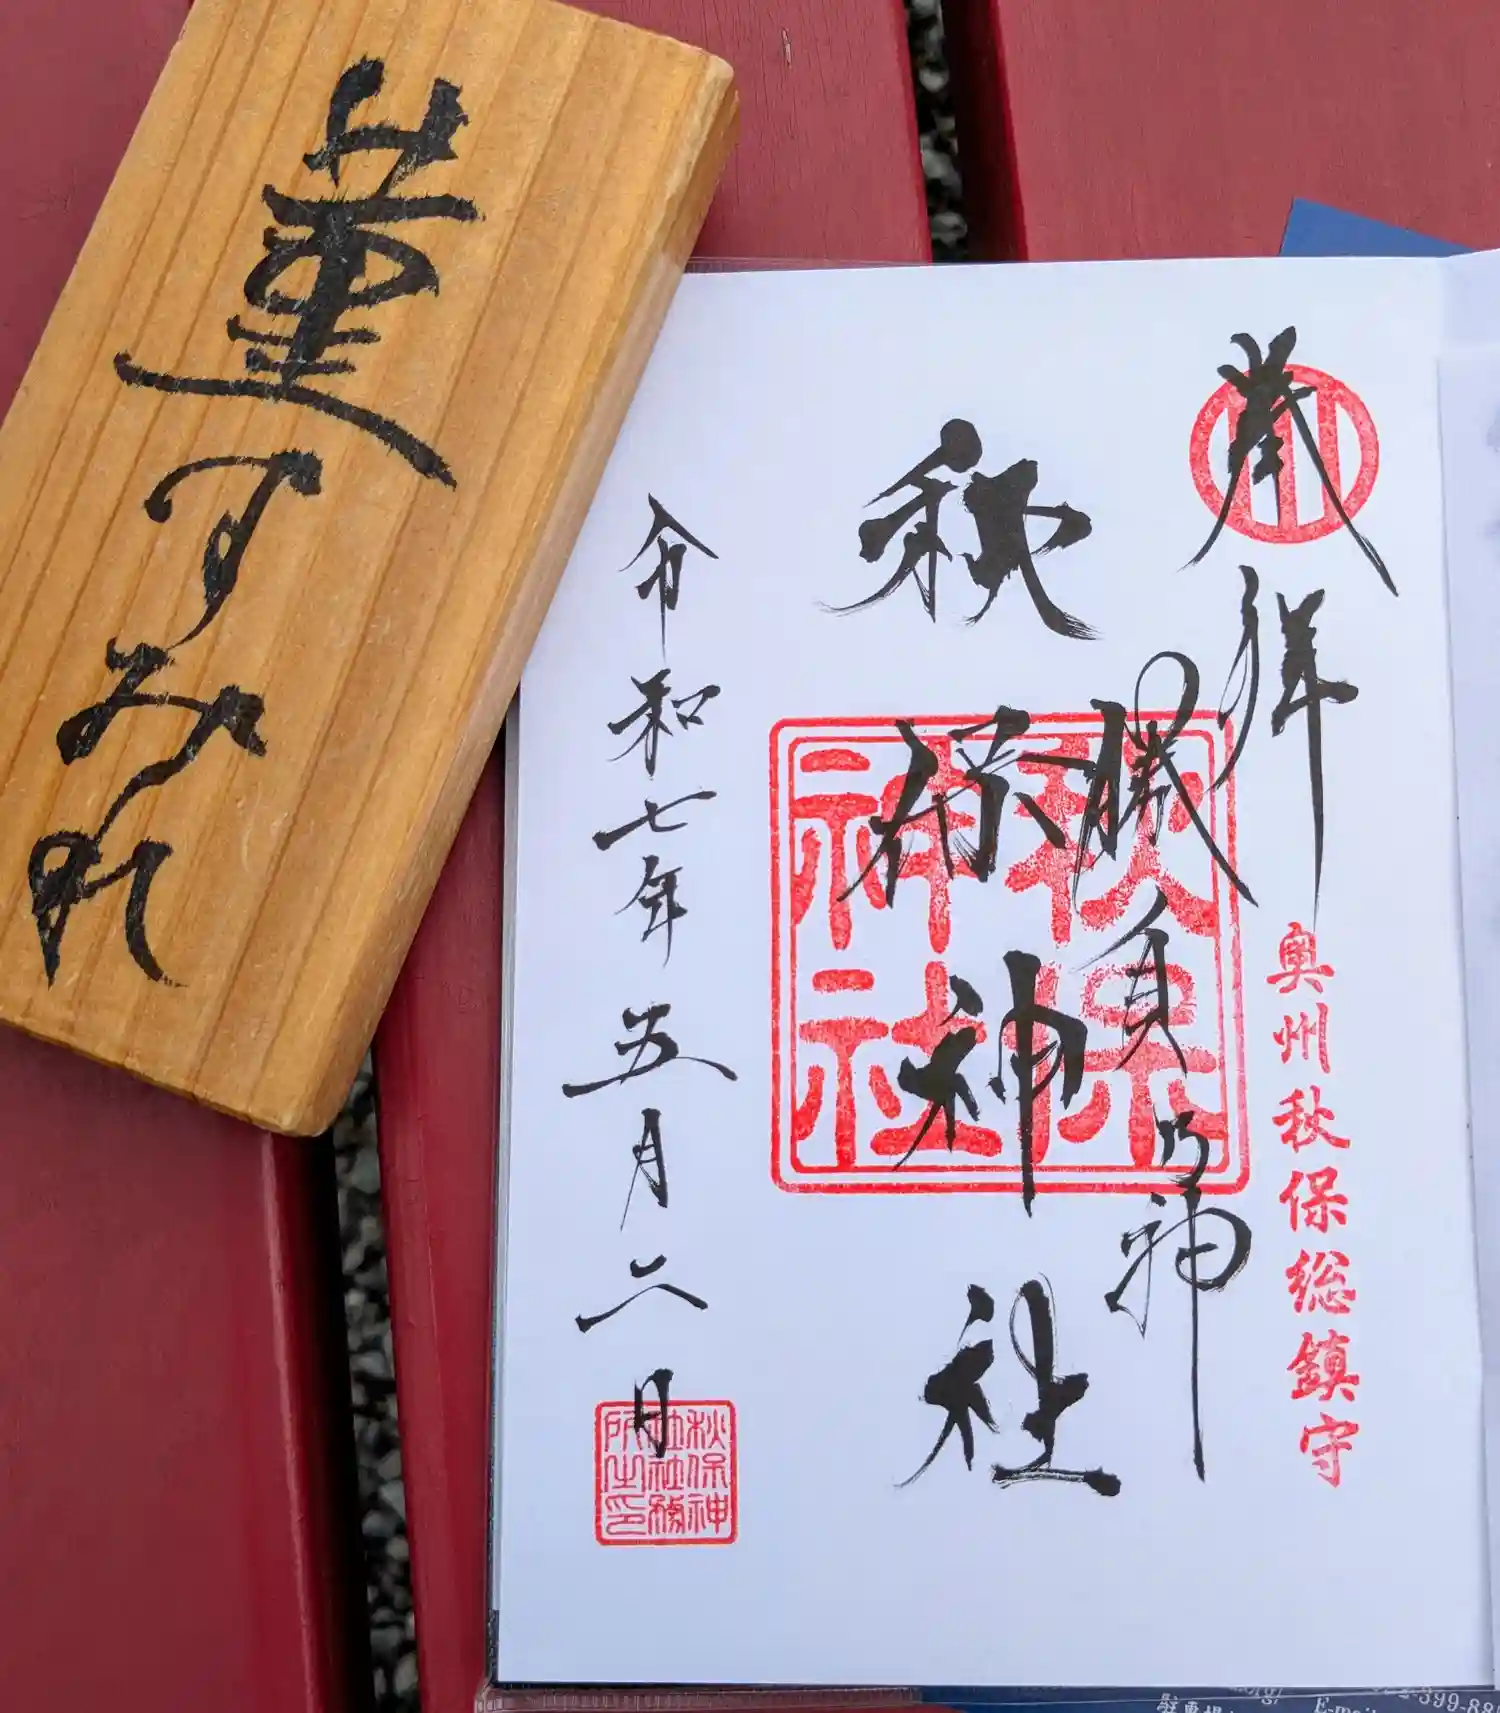 菫すみれ
奉拝
奥州秋保総鎮守
勝負の神
秋保神社
秋保神社
令和七年五月二日
秋保神
社社務
所之印
E-mail